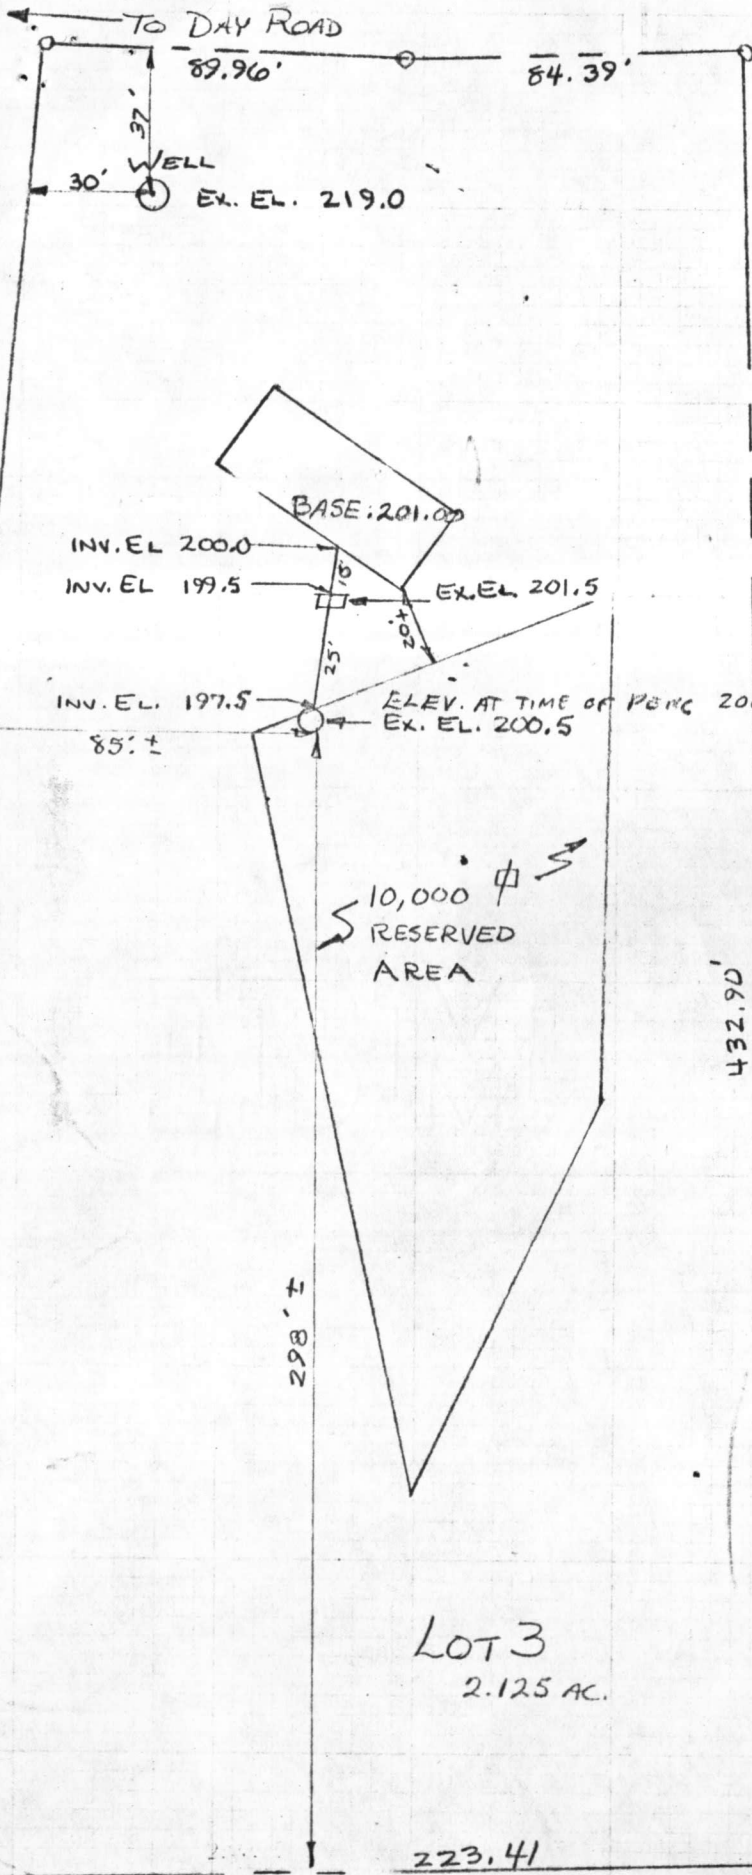 TO DAY ROAD
89.96'
84.39'
37'
WELL
30'
EX. EL. 219.0
BASE: 201.00
INV. EL 200.0
10'
INV. EL 199.5
EX. EL. 201.5
20'±
25'
INV. EL. 197.5
ELEV. AT TIME OF PERC
EX. EL. 200.5
85'±
10,000
RESERVED
AREA
432.90'
298'±
LOT 3
2.125 AC.
223.41